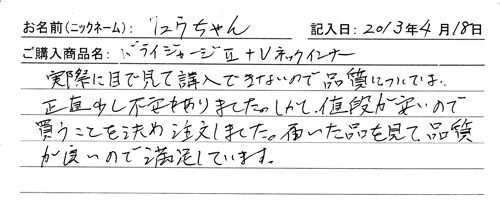 お名前(ニックネーム): にうちゃん 記入日: 2013年4月18日
ご購入商品名: ドライジャージⅡ+Vネックインナー
実際に目で見て購入できないので品質については、
正直少し不安もありました。しかし、値段が安いので
買うことを決め注文しました。届いた品を見て、品質
が良いので満足しています。